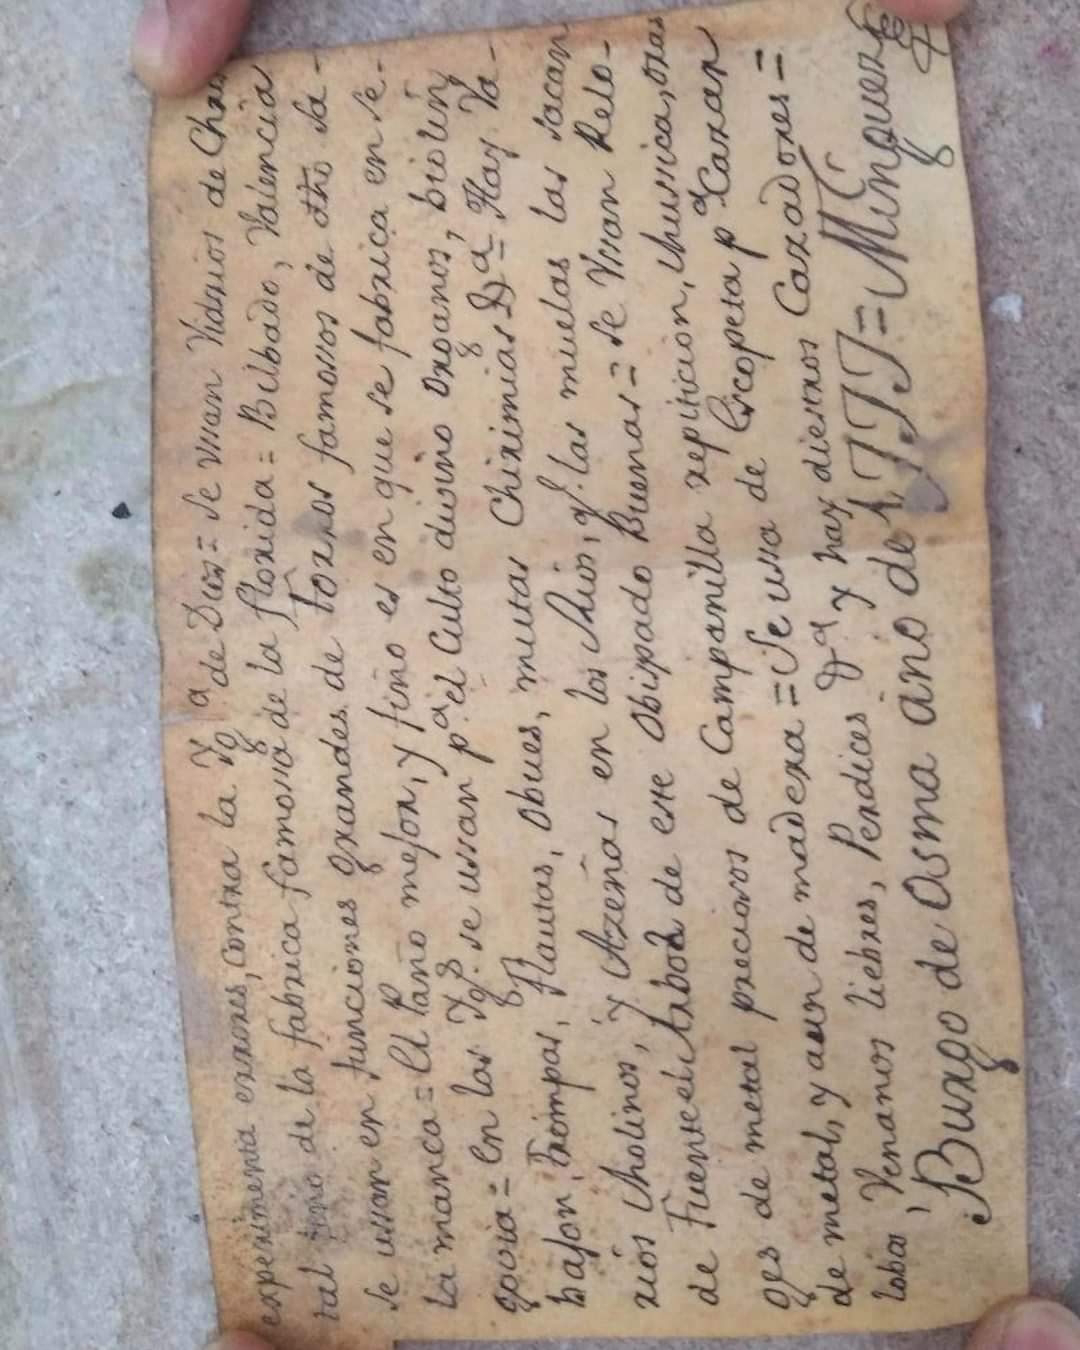 experimenta errores, contra la Ygª de Dios = Se usan Vidrios de Chris
tal fino de la fabrica famossa de la florida = Bilbado, Valencia
se usan en funciones grandes de Toros famossos de otro Sa-
lamanca = El Paño mejor, y fino es en que se fabrica en Se-
govia = En las Ygs. se ussan pª el Culto divino organos, biolin
bajon, Trompas, flautas, obues, mutas Chirimias &ª = Hay Va-
rios Molinos, y Azeñas en los Rios, q.e las muelas las sacan
de Fuente el Arbol de este obispado Buenas = Se Usan Relo-
ges de metal preciosos de Campanilla repiticion, Musica, oras
de metal, y aun de madera = Se usa de Escopeta pª Cazar
lobos, Venanos liebres, Perdices &ª y hay diestros Cazadores =
Burgo de Osma año de 1777 = Minguez